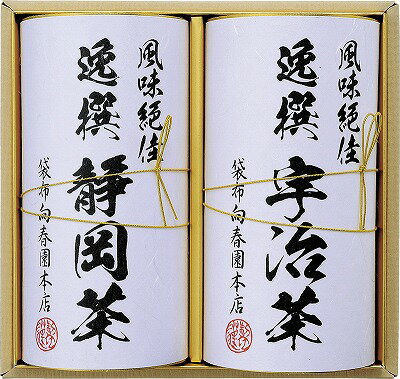 風味絶佳
逸撰 宇治茶
袋布向春園本店
風味絶佳
逸撰 静岡茶
袋布向春園本店